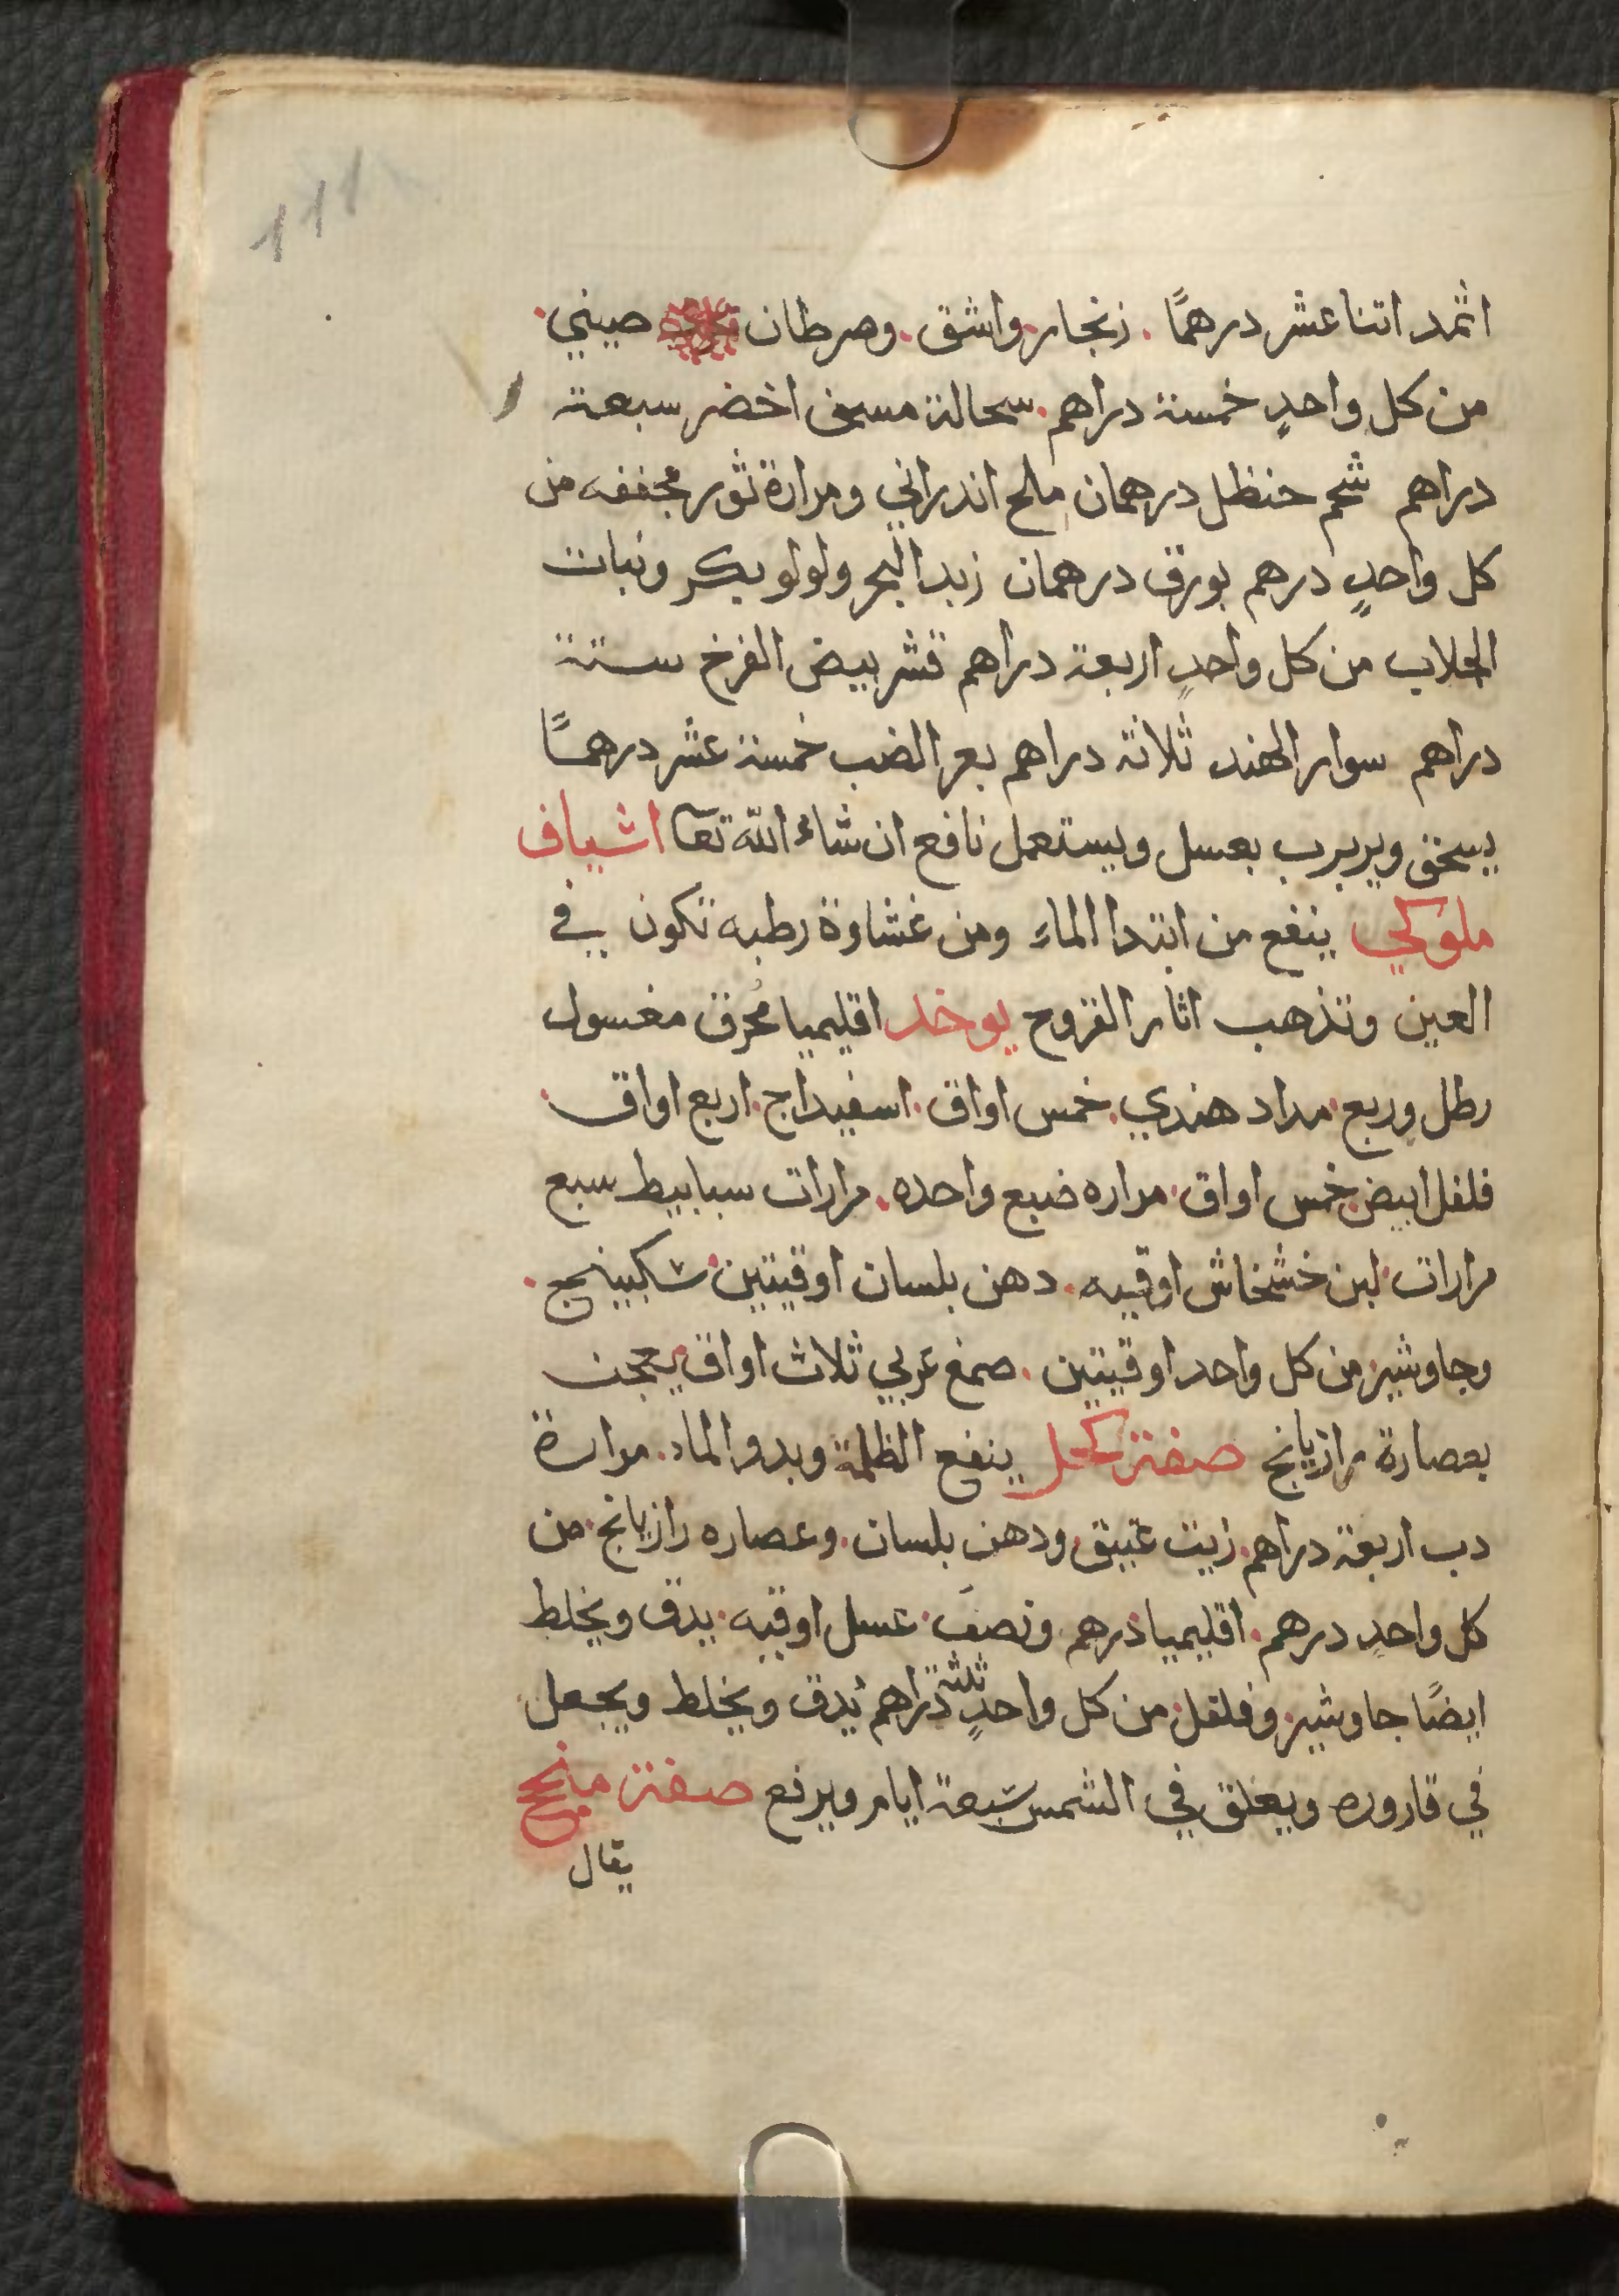 ١١١
اثمد اتنا عشر درهمًا . زنجار . واشق . وصرطان صيني .
من كل واحدٍ خمسة دراهم . سحالة مسن اخضر سبعة
دراهم شحم حنظل درهمان ملح اندراني ومرارة ثور مجففه من
كل واحدٍ درهم بورق درهمان زبد البحر ولولو بكر ونبات
الجلاب من كل واحدٍ اربعة دراهم قشر بيض الفرخ ستة
دراهم سوار الهند ثلاثة دراهم بعر الضب خمسة عشر درهمًا
يسحق ويربرب بعسل ويستعمل نافع ان شاء الله تعا اشياف
ملوكي ينفع من ابتدا الماء ومن غشاوة رطبه تكون في
العين وتذهب اثار القروح يوخد اقليميا محرق مغسول
رطل وربع . مداد هندي . خمس اواق . اسفيداج . اربع اواق .
فلفل ابيض . خمس اواق . مراره ضبع واحده . مرارات سبابيط سبع
مرارات . لبن خشخاش اوقيه . دهن بلسان اوقيتين . سكبينج .
وجاوشير . من كل واحد اوقيتين . صمغ عربي ثلاث اواق يعجن
بعصارة رازيانج صفة كحل ينفع الظلمة وبدو الماء . مرارة
دب اربعة دراهم . زيت عتيق . ودهن بلسان . وعصاره رازيانج . من
كل واحدٍ درهم . اقليميا درهم ونصف . عسل اوقيه . يدق ويخلط
ايضًا جاوشير . وفلفل . من كل واحدٍ ثلثة دراهم يدق ويخلط ويجعل
في قاروره ويعلق في الشمس سبعة ايام ويرفع صفة منجح
يقال